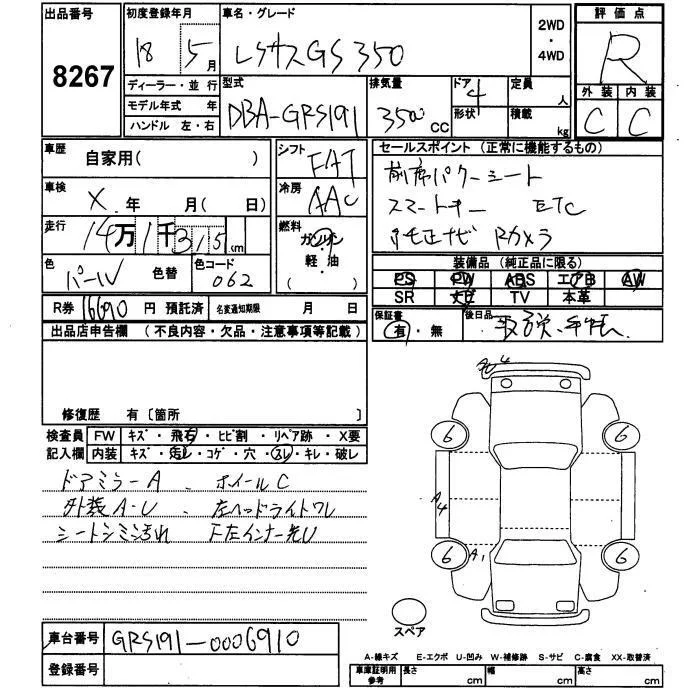 出品番号
8267
初度登録年月
18 5月
車名・グレード
レクサスGS350
2WD
・
4WD
評価点
R
外装 内装
C C
ディーラー・並行
モデル年式 年
ハンドル 左・右
型式
DBA-GRS191
排気量
3500cc
ドア 4
形状
定員 人
積載 kg
車歴
自家用( )
シフト
FAT
セールスポイント (正常に機能するもの)
前席パワーシート
スマートキー ETC
純正ナビ Rカメラ
車検
X 年 月( 日)
冷房
AAC
走行
14万1千315km
燃料
ガソリン
・
軽・油
( )
色
パール 色替
色コード
062
装備品(純品に限る)
PS PW ABS エアB AW
SR ナビ TV 本革
R券 16690 円 預託済
名変通知期限 月 日
保証書
有・無
後日品
取説、手帳
出品店申告欄 (不良内容・欠品・注意事項等記載)
修復歴 有〔箇所 〕
検査員
記入欄
FW キズ・飛石・ヒビ割・リペア跡・X要
内装 キズ・汚レ・コゲ・穴・スレ・キレ・破レ
ドアミラーA、ホイールC
外装A-U、左ヘッドライトワレ
シートシミ汚れ 下左インナー先U
A4
6 6
A4
6 A1 6
スペア
車台番号 GRS191-0006910
登録番号
A-線キズ E-エクボ U-凹み W-補修跡 S-サビ C-腐食 XX-取替済
車庫証明用
参考
長さ cm 幅 cm 高さ cm